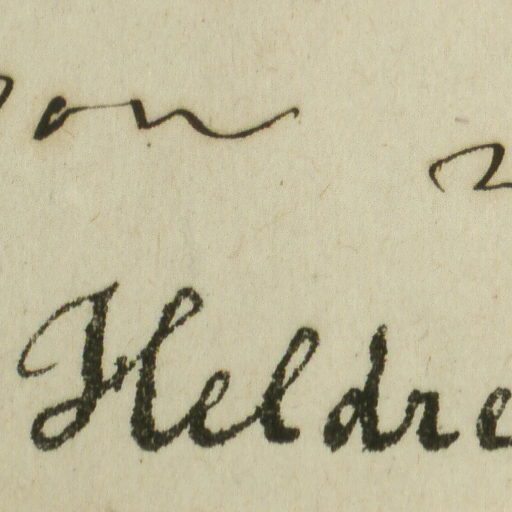 on
Heldre